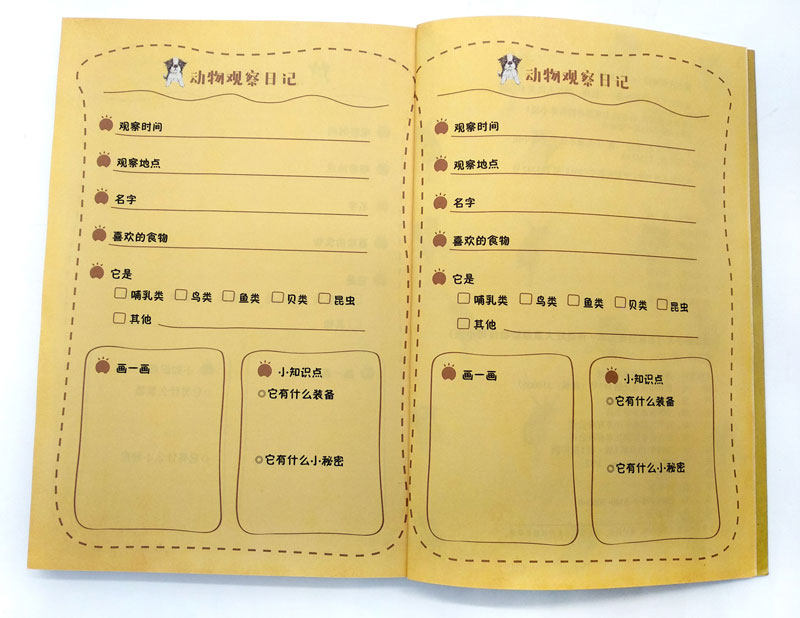 动物观察日记
观察时间
观察地点
名字
喜欢的食物
它是
哺乳类 鸟类 鱼类 贝类 昆虫
其他
画一画
小知识点
它有什么装备
它有什么小秘密
动物观察日记
观察时间
观察地点
名字
喜欢的食物
它是
哺乳类 鸟类 鱼类 贝类 昆虫
其他
画一画
小知识点
它有什么装备
它有什么小秘密